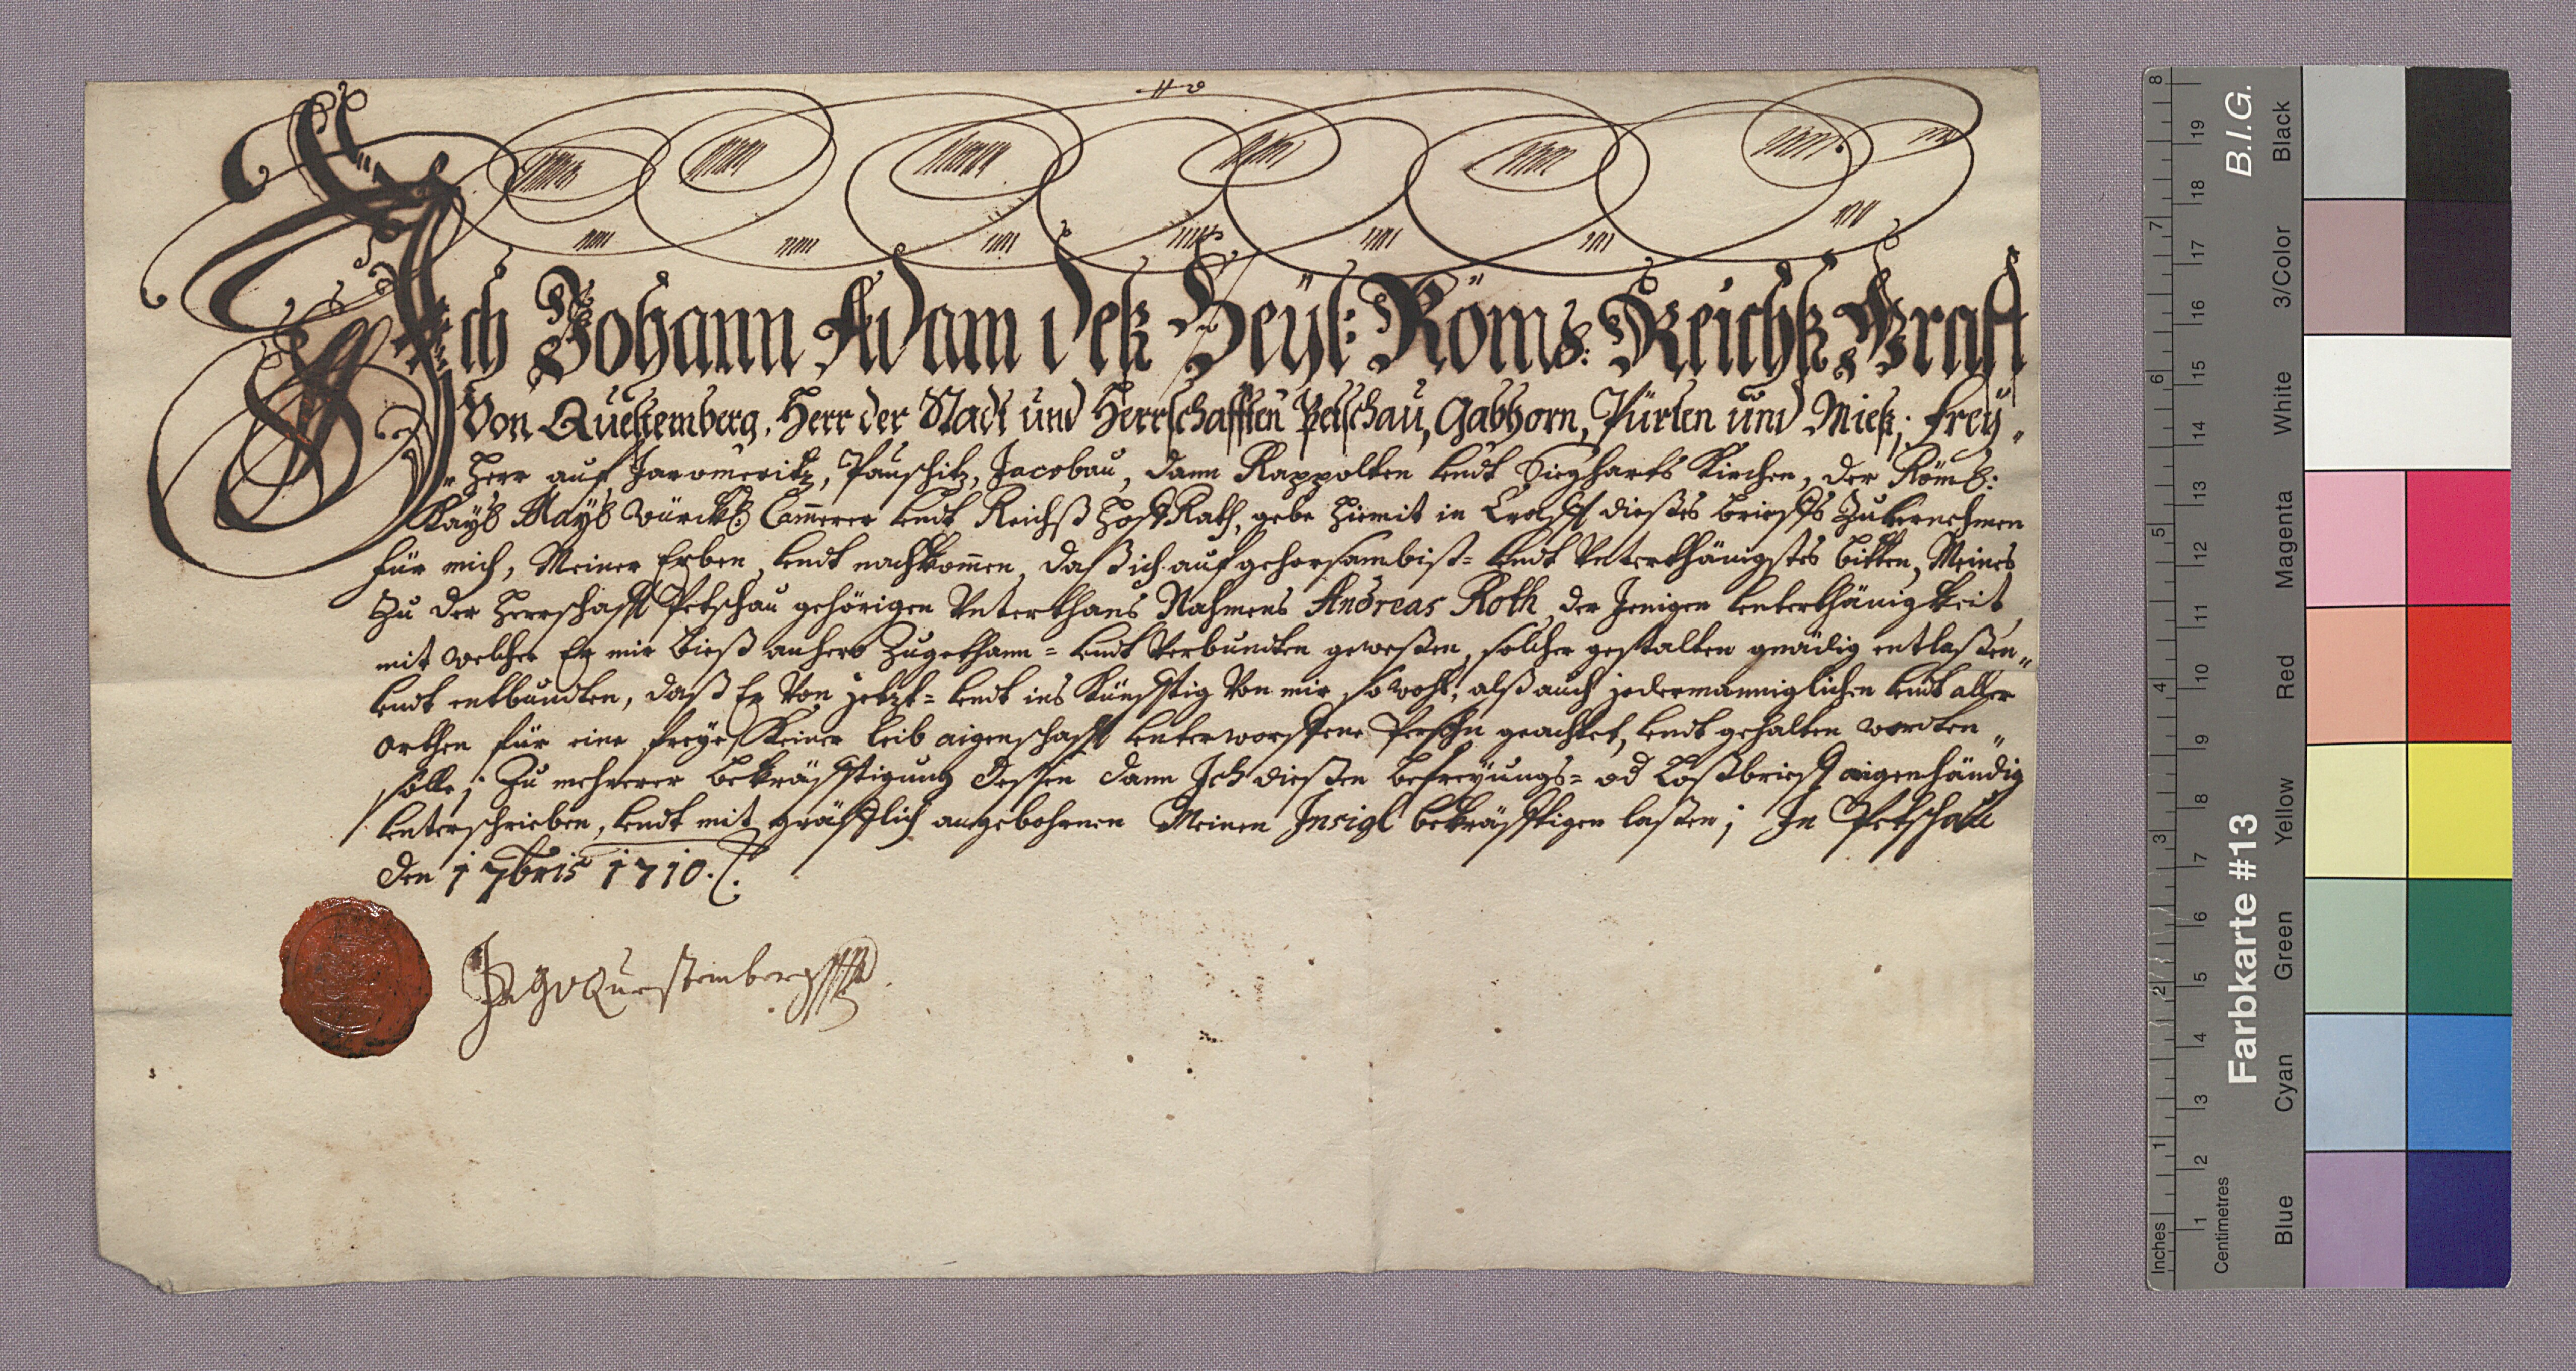 Ich Johann Adam deß Heÿl: Röm: Reichß Graff
Von Questemberg, Herr der Stadt und Herrschafften Petschau, Gabhorn, Pürten und Mieß; Freÿ„
„Herr auf Jaromeritz, Pauschitz, Jacobau, dann Rappolten undt Siegharts Kirchen, der Röm:
Kaÿs Maÿs würckl: Cammerer undt Reichß Hoff Rath, gebe hiemit in Crafft dießes brieffs zuvernehmen
für mich, Meiner Erben, undt nachkommen, daß ich auf gehorsambist= undt Unterthänigstes bitten, Meines
zu der Herrschafft Petschau gehörigen Unterthans Nahmens Andreas Roth, der jenigen unterthänigkeit,
mit welcher Er mir bieß anhero zugethann= undt Verbundten geweßen, solcher gestalten gnädig entlaßen„
undt entbundten, daß Er Von jetzt= undt ins künfftig Von mir sowohl, alß auch jedermanniglichen undt aller
orthen für eine freÿe, keiner leib aigenschafft unterworffene Persohn geachtet, undt gehalten werdten„
solle; Zu mehrerer bekräfftigung dessen dann Ich dießen befreÿungs= od Loßbrieff aigenhändig
unterschrieben, undt mit gräfflich angebohrnen Meinen Insigl bekräfftigen laßen; In Petschau
den 1 7bris 1710.
JAGvQuestemberg
Inches
Centimetres
1 2 3 4 5 6 7 8 9 10 11 12 13 14 15 16 17 18 19
1 2 3 4 5 6 7 8
Farbkarte #13
B.I.G.
Blue Cyan Green Yellow Red Magenta White 3/Color Black